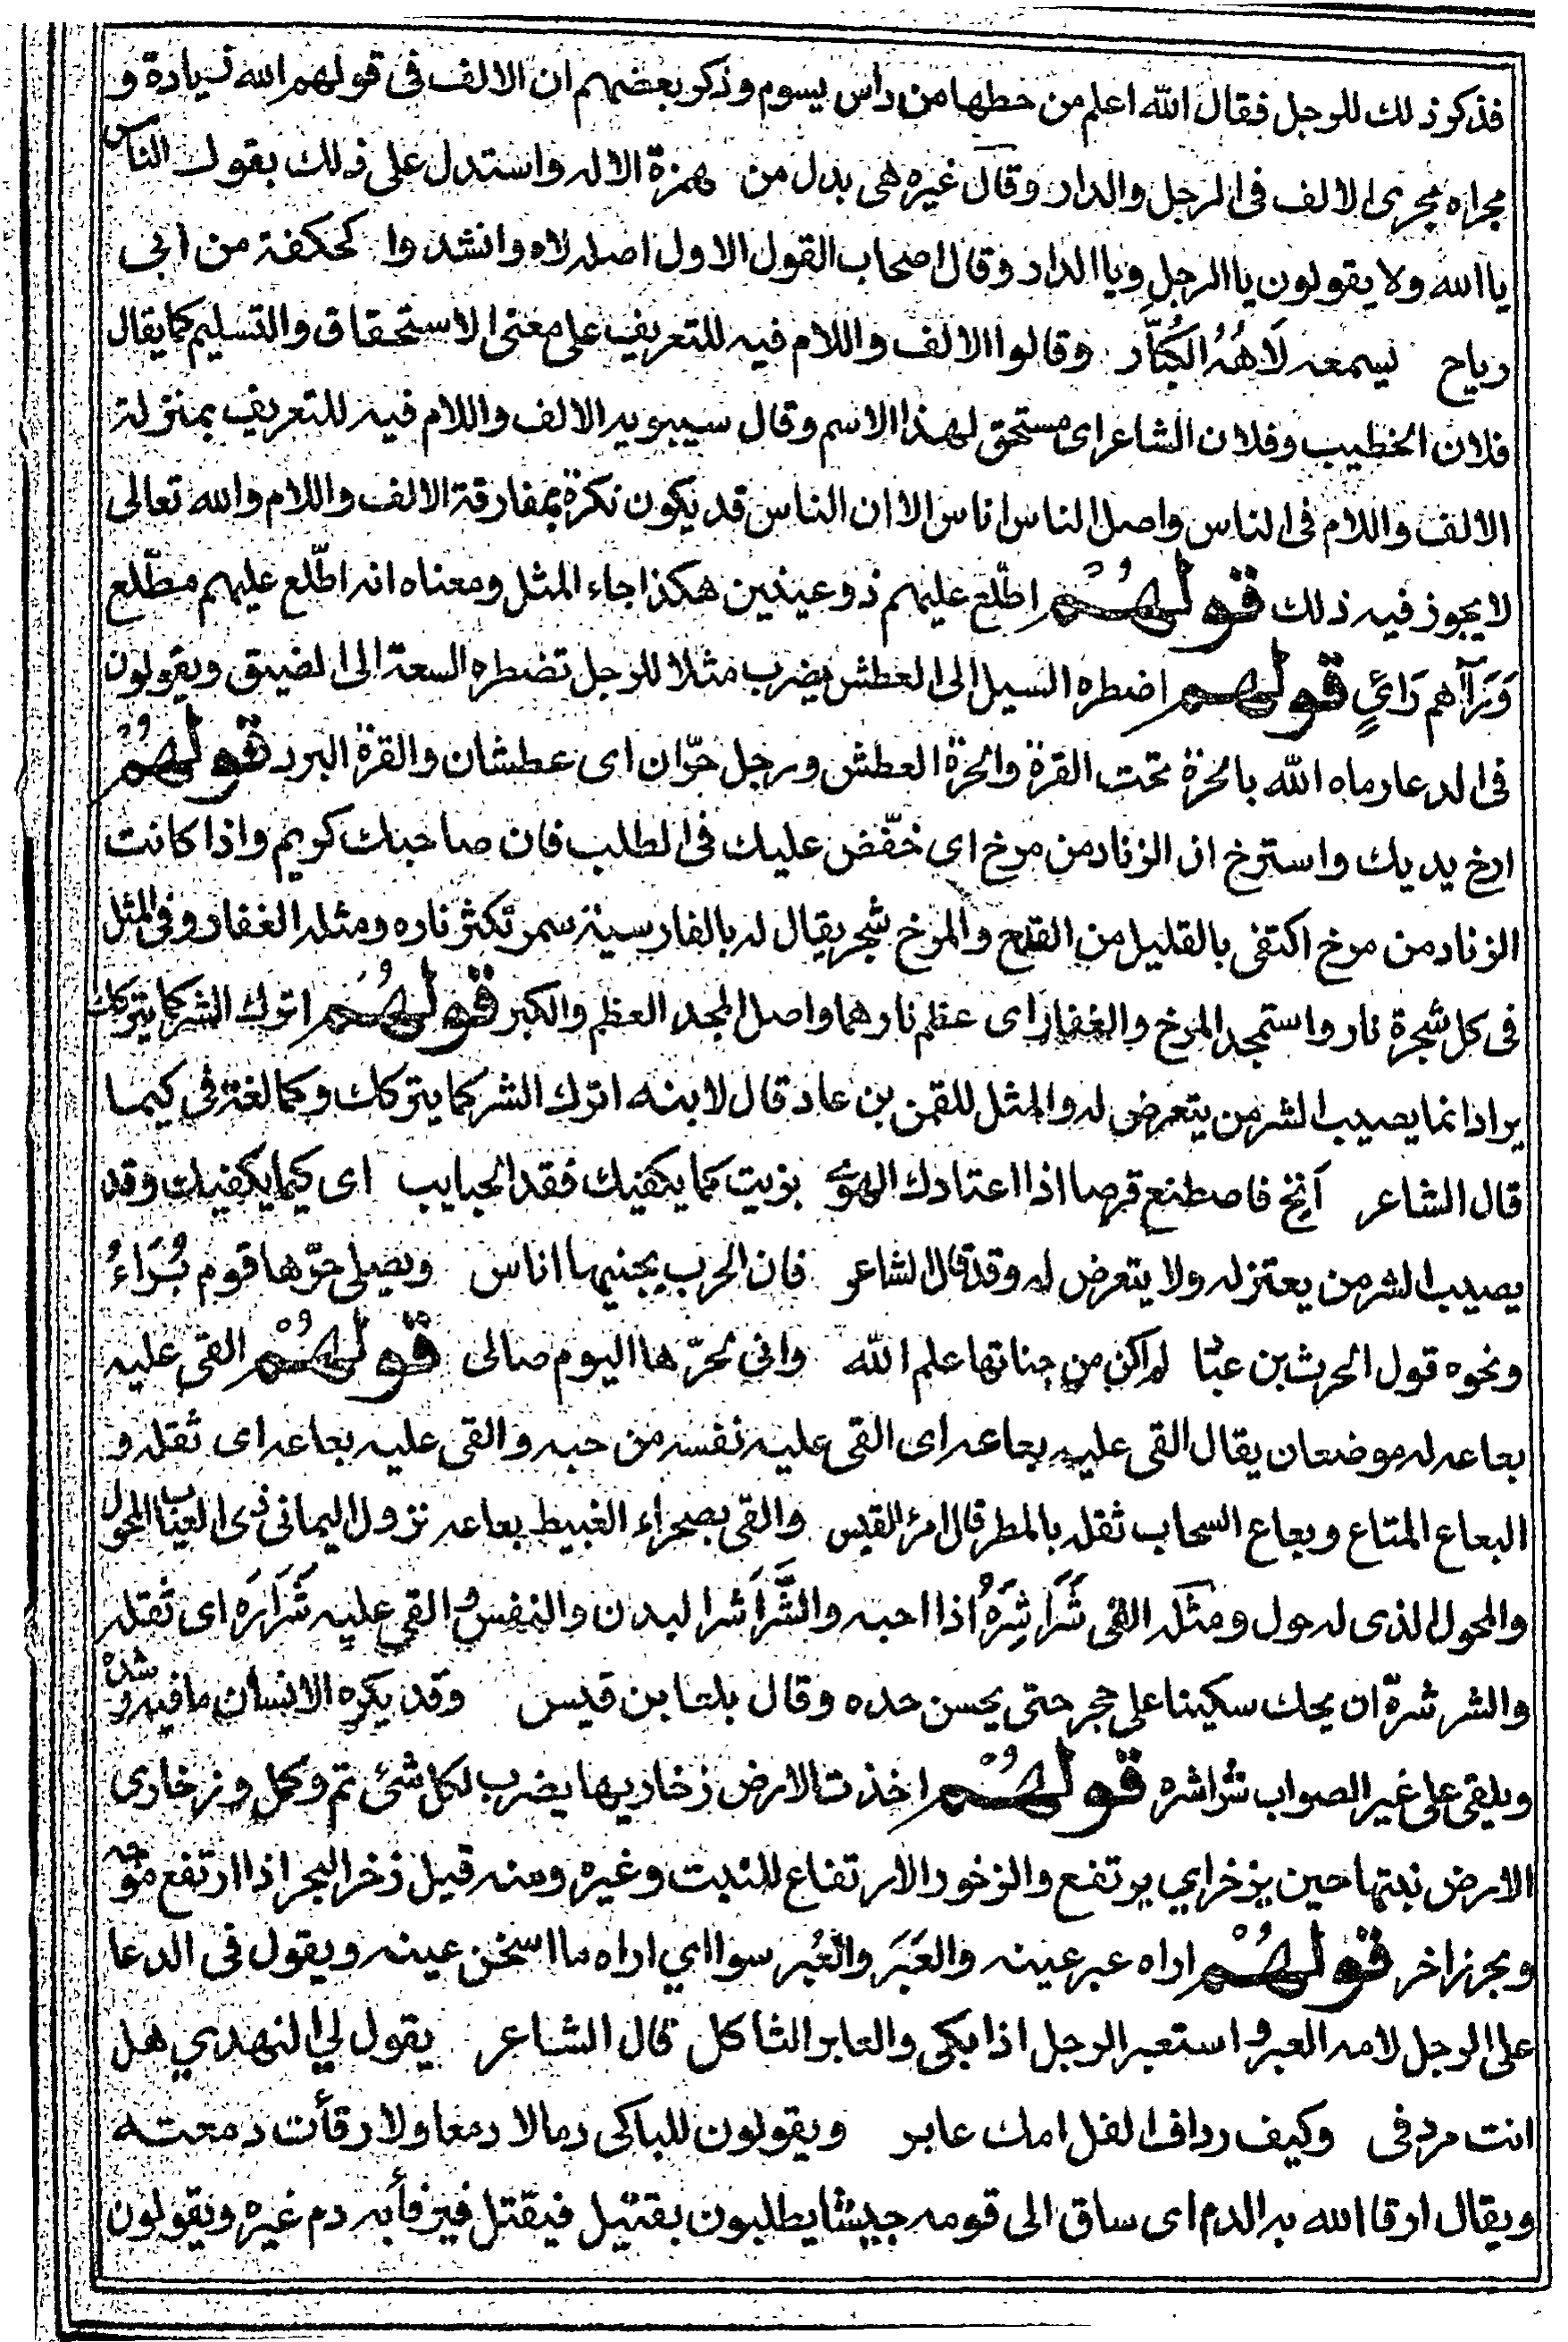 فذكر ذلك للرجل فقال الله اعلم من حطها من رأس يسوم وذكر بعضهم ان الالف فى قولهم الله زيادة و
مجراه مجرى الالف فى الرجل والدار وقال غيره هى بدل من همزة الاله واستدل على ذلك بقول الناس
ياالله ولا يقولون ياالرجل وياالدار وقال اصحاب القول الاول اصله لاه وانشدوا كحكفة من ابى
رياح يسمعه لَاهُهُ الكُبَّار وقالوا الالف واللام فيه للتعريف على معنى الاستحقاق والتسليم كمايقال
فلان الخطيب وفلان الشاعر اى مستحق لهذا الاسم وقال سيبويه الالف واللام فيه للتعريف بمنزلة
الالف واللام فى الناس واصل الناس اناس الا ان الناس قد يكون نكرة بمفارقة الالف واللام والله تعالى
لا يجوز فيه ذلك قولهُمْ اطّلع عليهم ذوعينين هكذا جاء المثل ومعناه انه اطّلع عليهم مطّلع
وَرَآهم رَائٍ قولهم اضطره السيل الى العطش يضرب مثلا للرجل تضطره السعة الى الضيق ويقولون
فى الدعا رماه الله بالحرة تحت القرة والحرة العطش ورجل حرّان اى عطشان والقرة البرد قولهُمْ
ارخ يديك واسترخ ان الزناد من مرخ اى خفّض عليك فى الطلب فان صاحبك كريم واذا كانت
الزناد من مرخ اكتفى بالقليل من القدح والمرخ شجر يقال له بالفارسية سمر تكثر ناره ومثله الغفار وفى المثل
فى كل شجرة نار واستمجد المرخ والغفار اى عظم نارهما واصل المجد العظم والكبر قولهُمْ اترك الشر كما يتركك
يراد انما يصيب الشر من يتعرض له والمثل للقمن بن عاد قال لابنه اترك الشر كما يتركك وكما لغة فى كيما
قال الشاعر اَنِخ فاصطنع قرصا اذا اعتادك الهوى بزيت كما يكفيك فقد الحبايب اى كيما يكفيك وقد
يصيب الشر من يعتزله ولا يتعرض له وقد قال الشاعر فان الحرب يجنيها اناس ويصلى حرّها قوم بُرَاءُ
ونحوه قول الحرث بن عبّا لم اكن من جناتها علم الله وانى بحرّها اليوم صالى قولهُمْ القى عليه
بعاعه له موضعان يقال القى عليه بعاعه اى القى عليه نفسه من حبه والقى عليه بعاعه اى ثقله و
البعاع المتاع وبعاع السحاب ثقله بالمطر قال امرؤ القيس والقى بصحراء الغبيط بعاعه نزول اليمانى ذى العياب المحول
والمحول الذى له حول ومثله القى شَرَاشِرَهُ اذا احبه والشَّرَاشر البدن والنفس والقى عليه شَرَارَه اى ثقله
والشرشرة ان يحك سكينا على حجر حتى يحسن حده وقال بلعا بن قيس وقد يكره الانسان ما فيه رشده
ويلقى على غير الصواب شراشره قولهُمْ اخذت الارض زخاريها يضرب لكل شئ تم وكمل وزخارى
الارض نبتها حين يزخر اي يرتفع والزخور الارتفاع للنبت وغيره ومنه قيل زخر البحر اذا ارتفع موجه
وبحر زاخر قولهُمْ اراه عبر عينه والعَبَر والعُبر سوا اي اراه ما اسخن عينه ويقول فى الدعا
على الرجل لامه العبر واستعبر الرجل اذا بكى والعابر الثاكل قال الشاعر يقول لي النهدي هل
انت مردفى وكيف رداف الفل امك عابر ويقولون للباكى دما لا دمعا ولا رقأت دمعته
ويقال ارقا الله به الدم اى ساق الى قومه جيشا يطلبون بقتيل فيقتل فيرقأ به دم غيره ويقولون